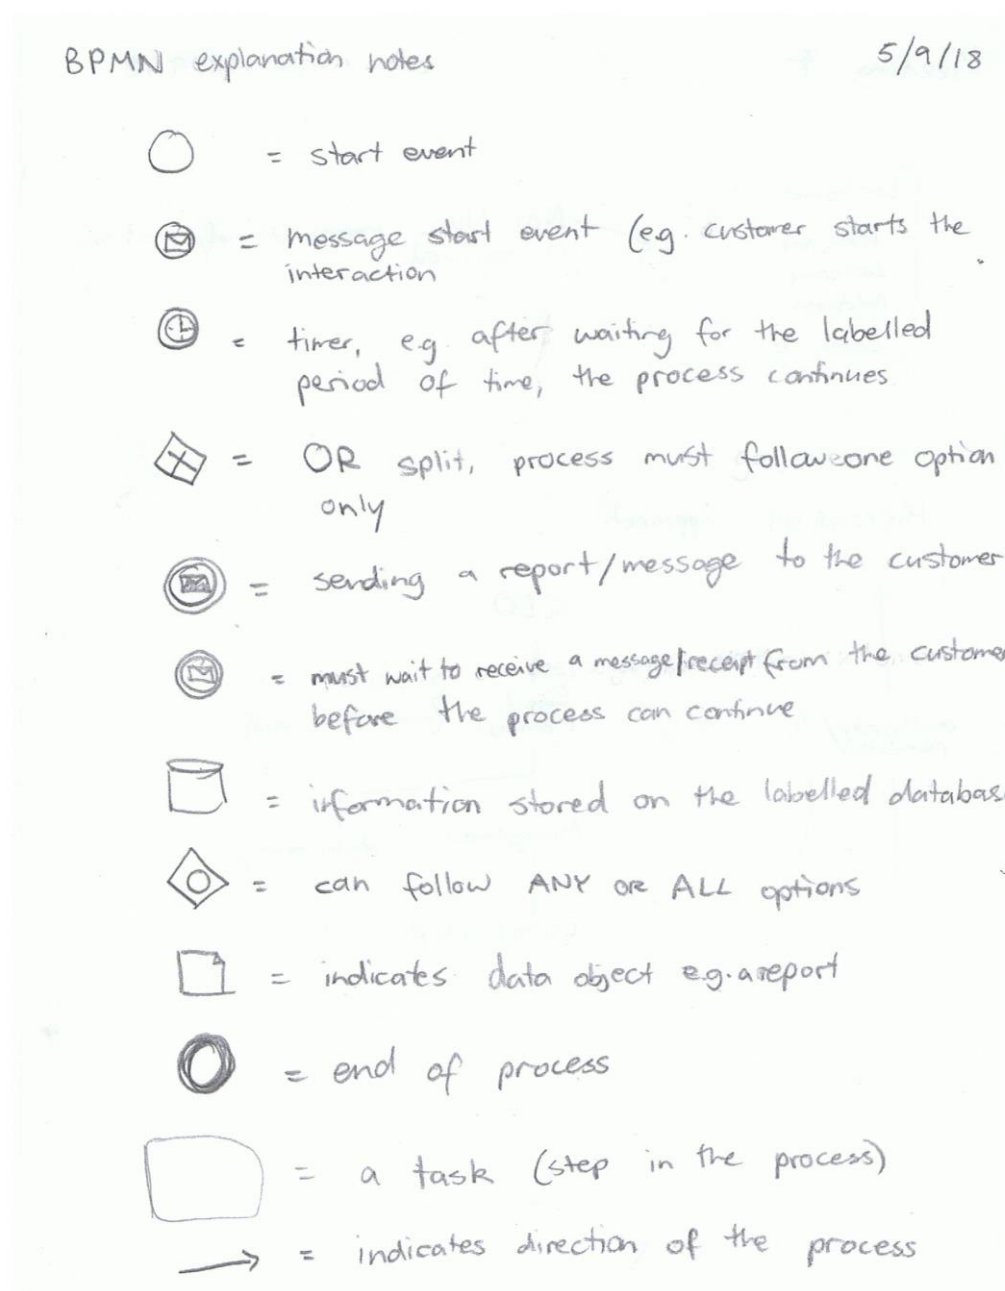 BPMN explanation notes 5/9/18
= start event
= message start event (e.g. customer starts the
interaction
= timer, e.g. after waiting for the labelled
period of time, the process continues
= OR split, process must follow one option
only
= sending a report/message to the customer
= must wait to receive a message/receipt from the custome
before the process can continue
= information stored on the labelled databas
= can follow ANY OR ALL options
= indicates data object e.g. a report
= end of process
= a task (step in the process)
= indicates direction of the process